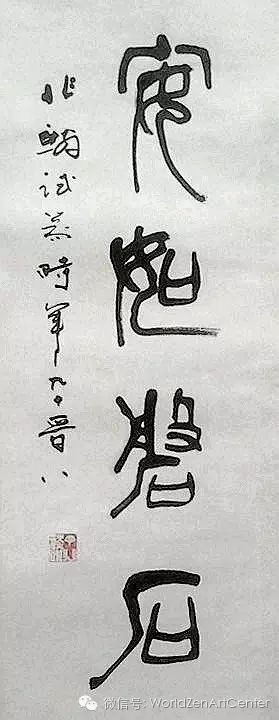 安如磐石
試筆時年九十晋八
微信号: WorldZenArtCenter